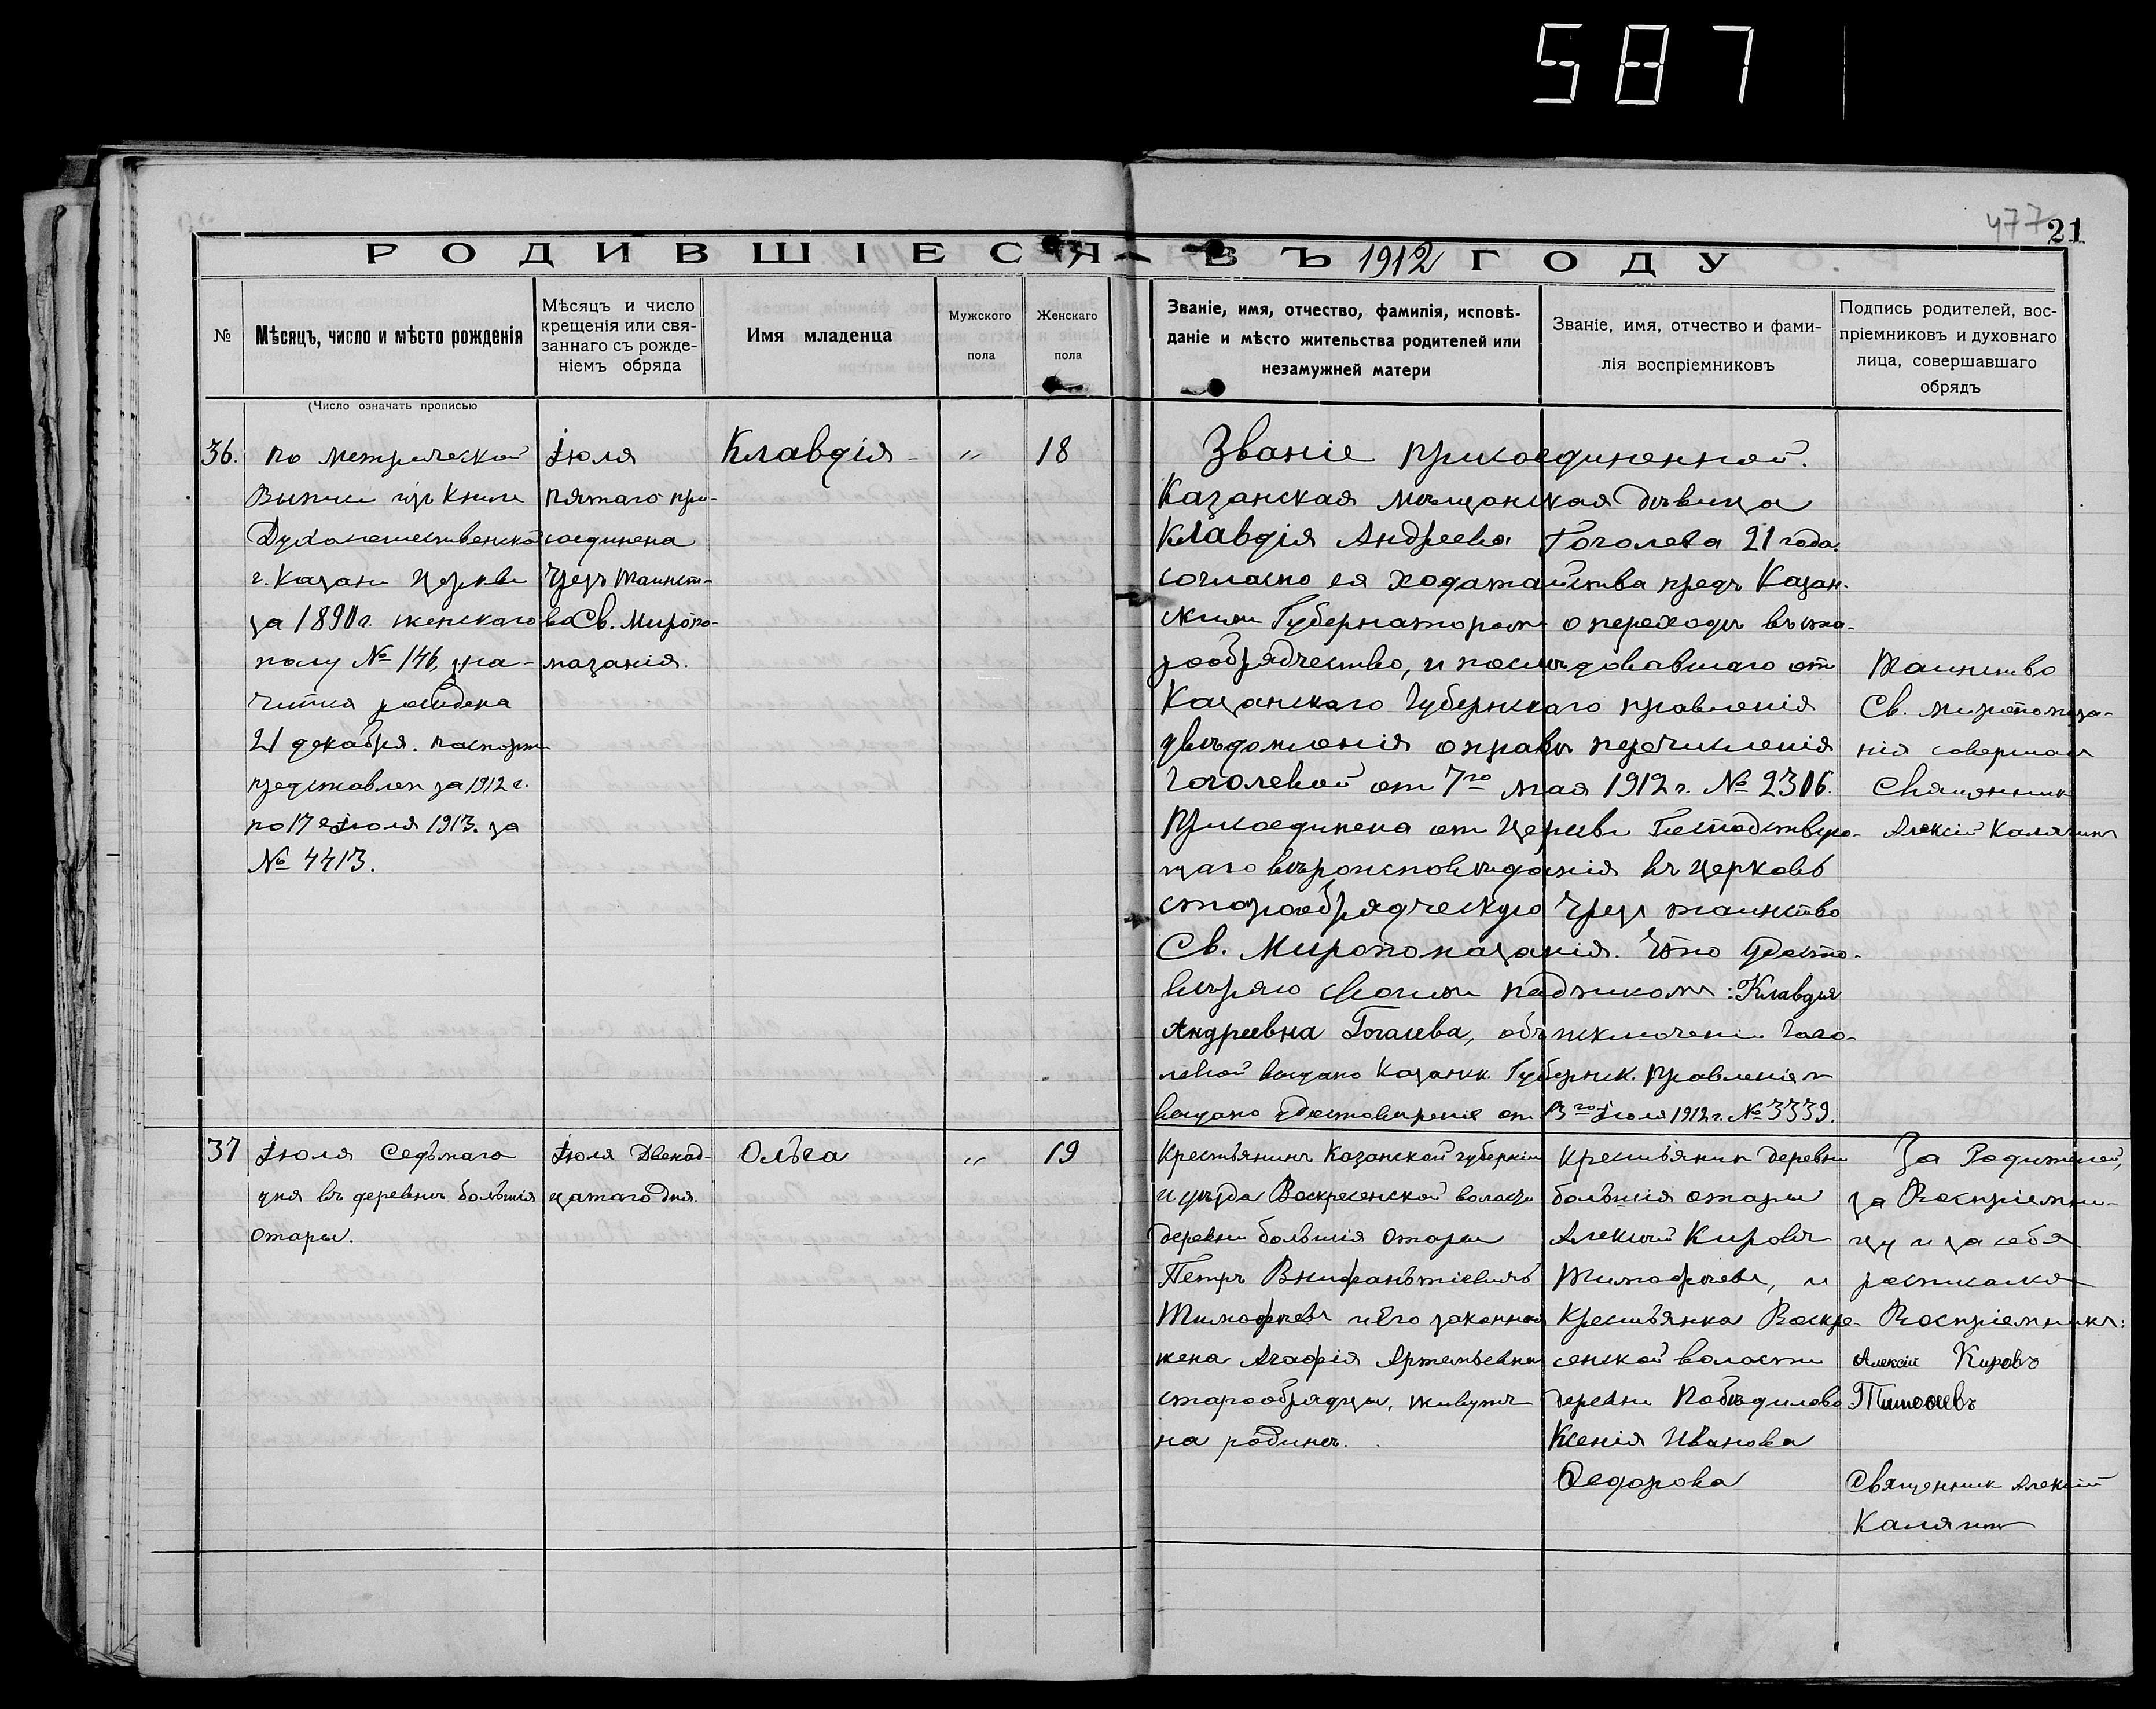 587
477
21
РОДИВШІЕСЯ ВЪ 1912 ГОДУ
№
Мѣсяцъ, число и мѣсто рожденія
Мѣсяцъ и число
крещенія или свя-
заннаго съ рожде-
ніемъ обряда
Имя младенца
Мужского
пола
Женскаго
пола
Званіе, имя, отчество, фамилія, исповѣ-
даніе и мѣсто жительства родителей или
незамужней матери
Званіе, имя, отчество и фами-
лія воспріемниковъ
Подпись родителей, вос-
пріемниковъ и духовнаго
лица, совершавшаго
обрядъ
(Число означать прописью
36.
по метрической
выписи изъ книги
Духосошественской
г. Казани церкви
за 1890 г. женскаго
полу № 146, зна-
чится рождена
21 декабря. паспортъ
представлен за 1912 г.
по 17 е Іюля 1913. за
№ 4413.
Іюля
пятаго при-
соединена
чрезъ таинст-
во Св. Миропо-
мазанія.
Клавдія
"
18
Званіе присоединенной.
Казанская мѣщанская дѣвица
Клавдія Андреева Гоголева 21 года.
согласно ея ходатайства предъ Казан-
скимъ Губернаторомъ о переходѣ въ ста-
рообрядчество, и послѣдовавшаго от
Казанскаго Губернскаго правленія
увѣдомленія о правѣ перечисленія
Гоголевой от 7го мая 1912 г. № 2306.
присоединена от церкви Господствую-
щаго вѣроисповѣданія въ церковь
старообрядческую чрезъ таинство
Св. Миропомазанія. Что удосто-
вѣряю своимъ подписомъ: Клавдия
Андреевна Гоголева, объ исключеніи Гого-
левой выдано Казанск. Губернск. Правленіем
выдано удостоверение от 3го Іюля 1912 г. № 3339.
Таинство
Св. миропомаза-
нія совершал
Священникъ
Алексій Калягинъ
37
Іюля Седьмаго
дня въ деревнѣ большія
отары.
Іюля Двенад-
цатаго дня.
Ольга
"
19
Крестьянинъ Казанской губерніи
и уѣзда Воскресенской волости
деревни большія Отары
Петръ Внифантіевичъ
Тимофѣевъ и Его законная
жена Агафія Артемьевна
старообрядцы, живутъ
на родинѣ.
Крестьянин деревни
большія отары
Алексій Кировъ
Тимофѣевъ, и
Крестьянка Воскре-
сенской волости
деревни Победилово
Ксенія Иванова
Федорова
За Родителей,
за Воспріемни-
цу и за себя
росписался
Воспріемникъ:
Алексій Кировъ
Тимофеевъ
Священник Алексій
Калягинъ